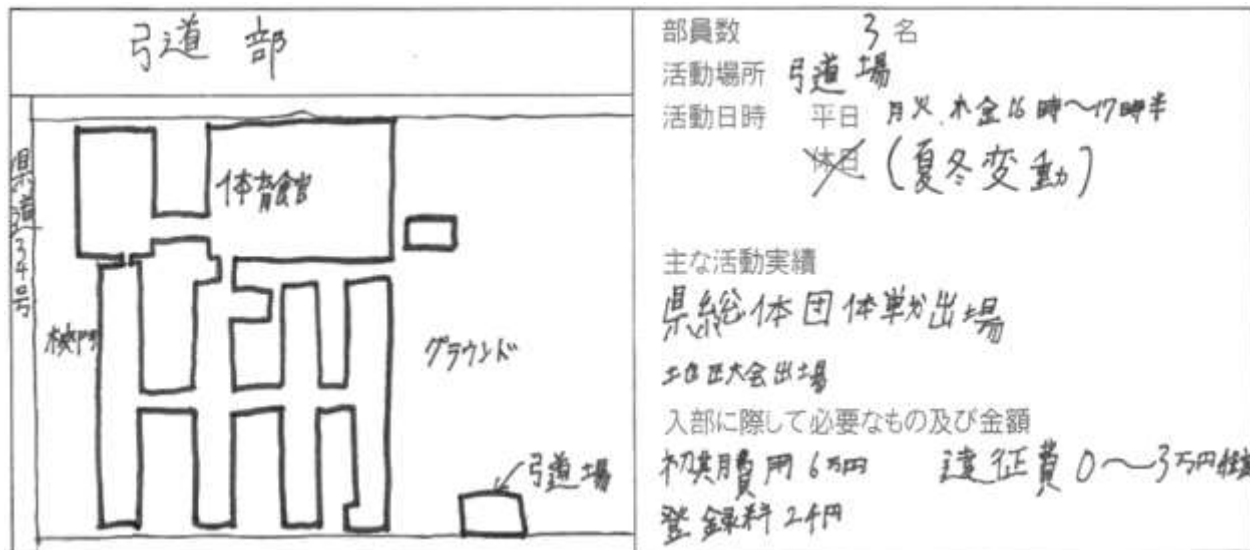 弓道部
体育館
県道234号
校門
グラウンド
弓道場
部員数 3名
活動場所 弓道場
活動日時 平日 月火、木金16時〜17時半
休日 (夏冬変動)
主な活動実績
県総体団体戦出場
地区大会出場
入部に際して必要なもの及び金額
初期費用6万円 遠征費0〜3万円程度
登録料2千円